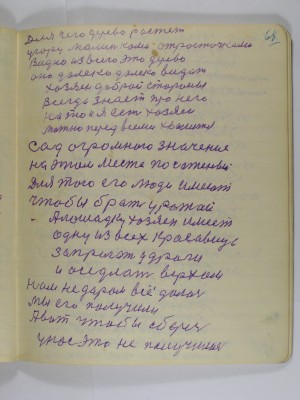 68
для чего дерево растет
угору малинками отросточками
Видно из всего это дерево
оно далеко далеко видат
хозяен доброй стороны
всегда знает про него
на то я ест хозяен
можно перед всеми
Сад огромного значение
на этом месте посаженый
для того его люди имеют
чтобы брат урожай
А лошадку хозяен имеет
одну из всех красавиц
запрегат
и оседлат верхом
нам недаром всё далося
мы его получили
Авот чтобы сберч
у нас это не получился